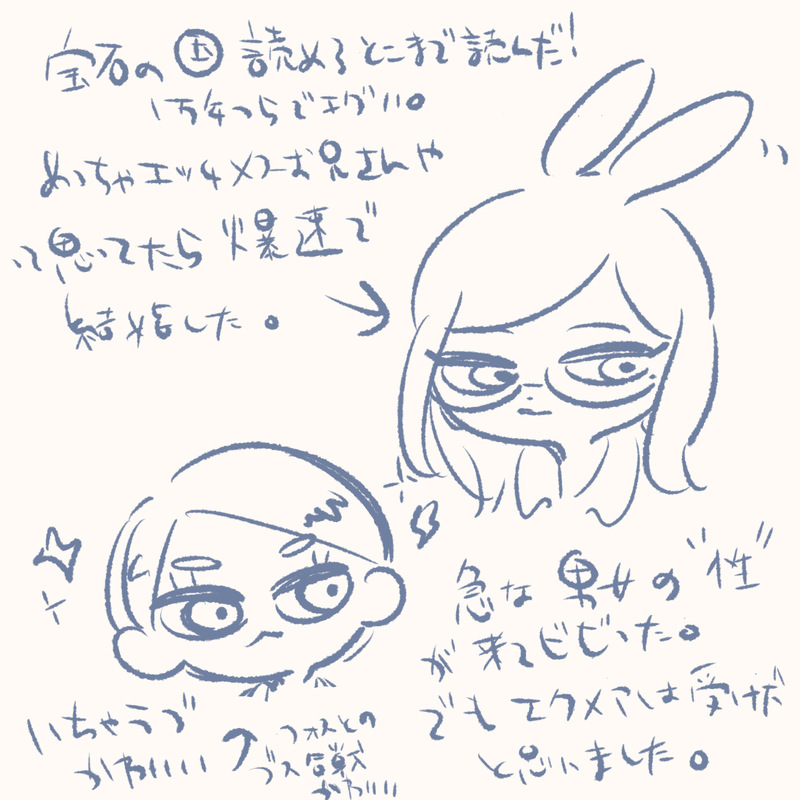 宝石の国 読めるとこまで読んだ!
1万年つらでエグい。
めっちゃエッチメスお兄さんや
って思ってたら爆速で
結婚した。
急な男女の"性"
が来てビビった。
でもエクメアは受けだ
と思いました。
いちゃラブ
かわいい
フォスとの
ブス合戦
かわいい